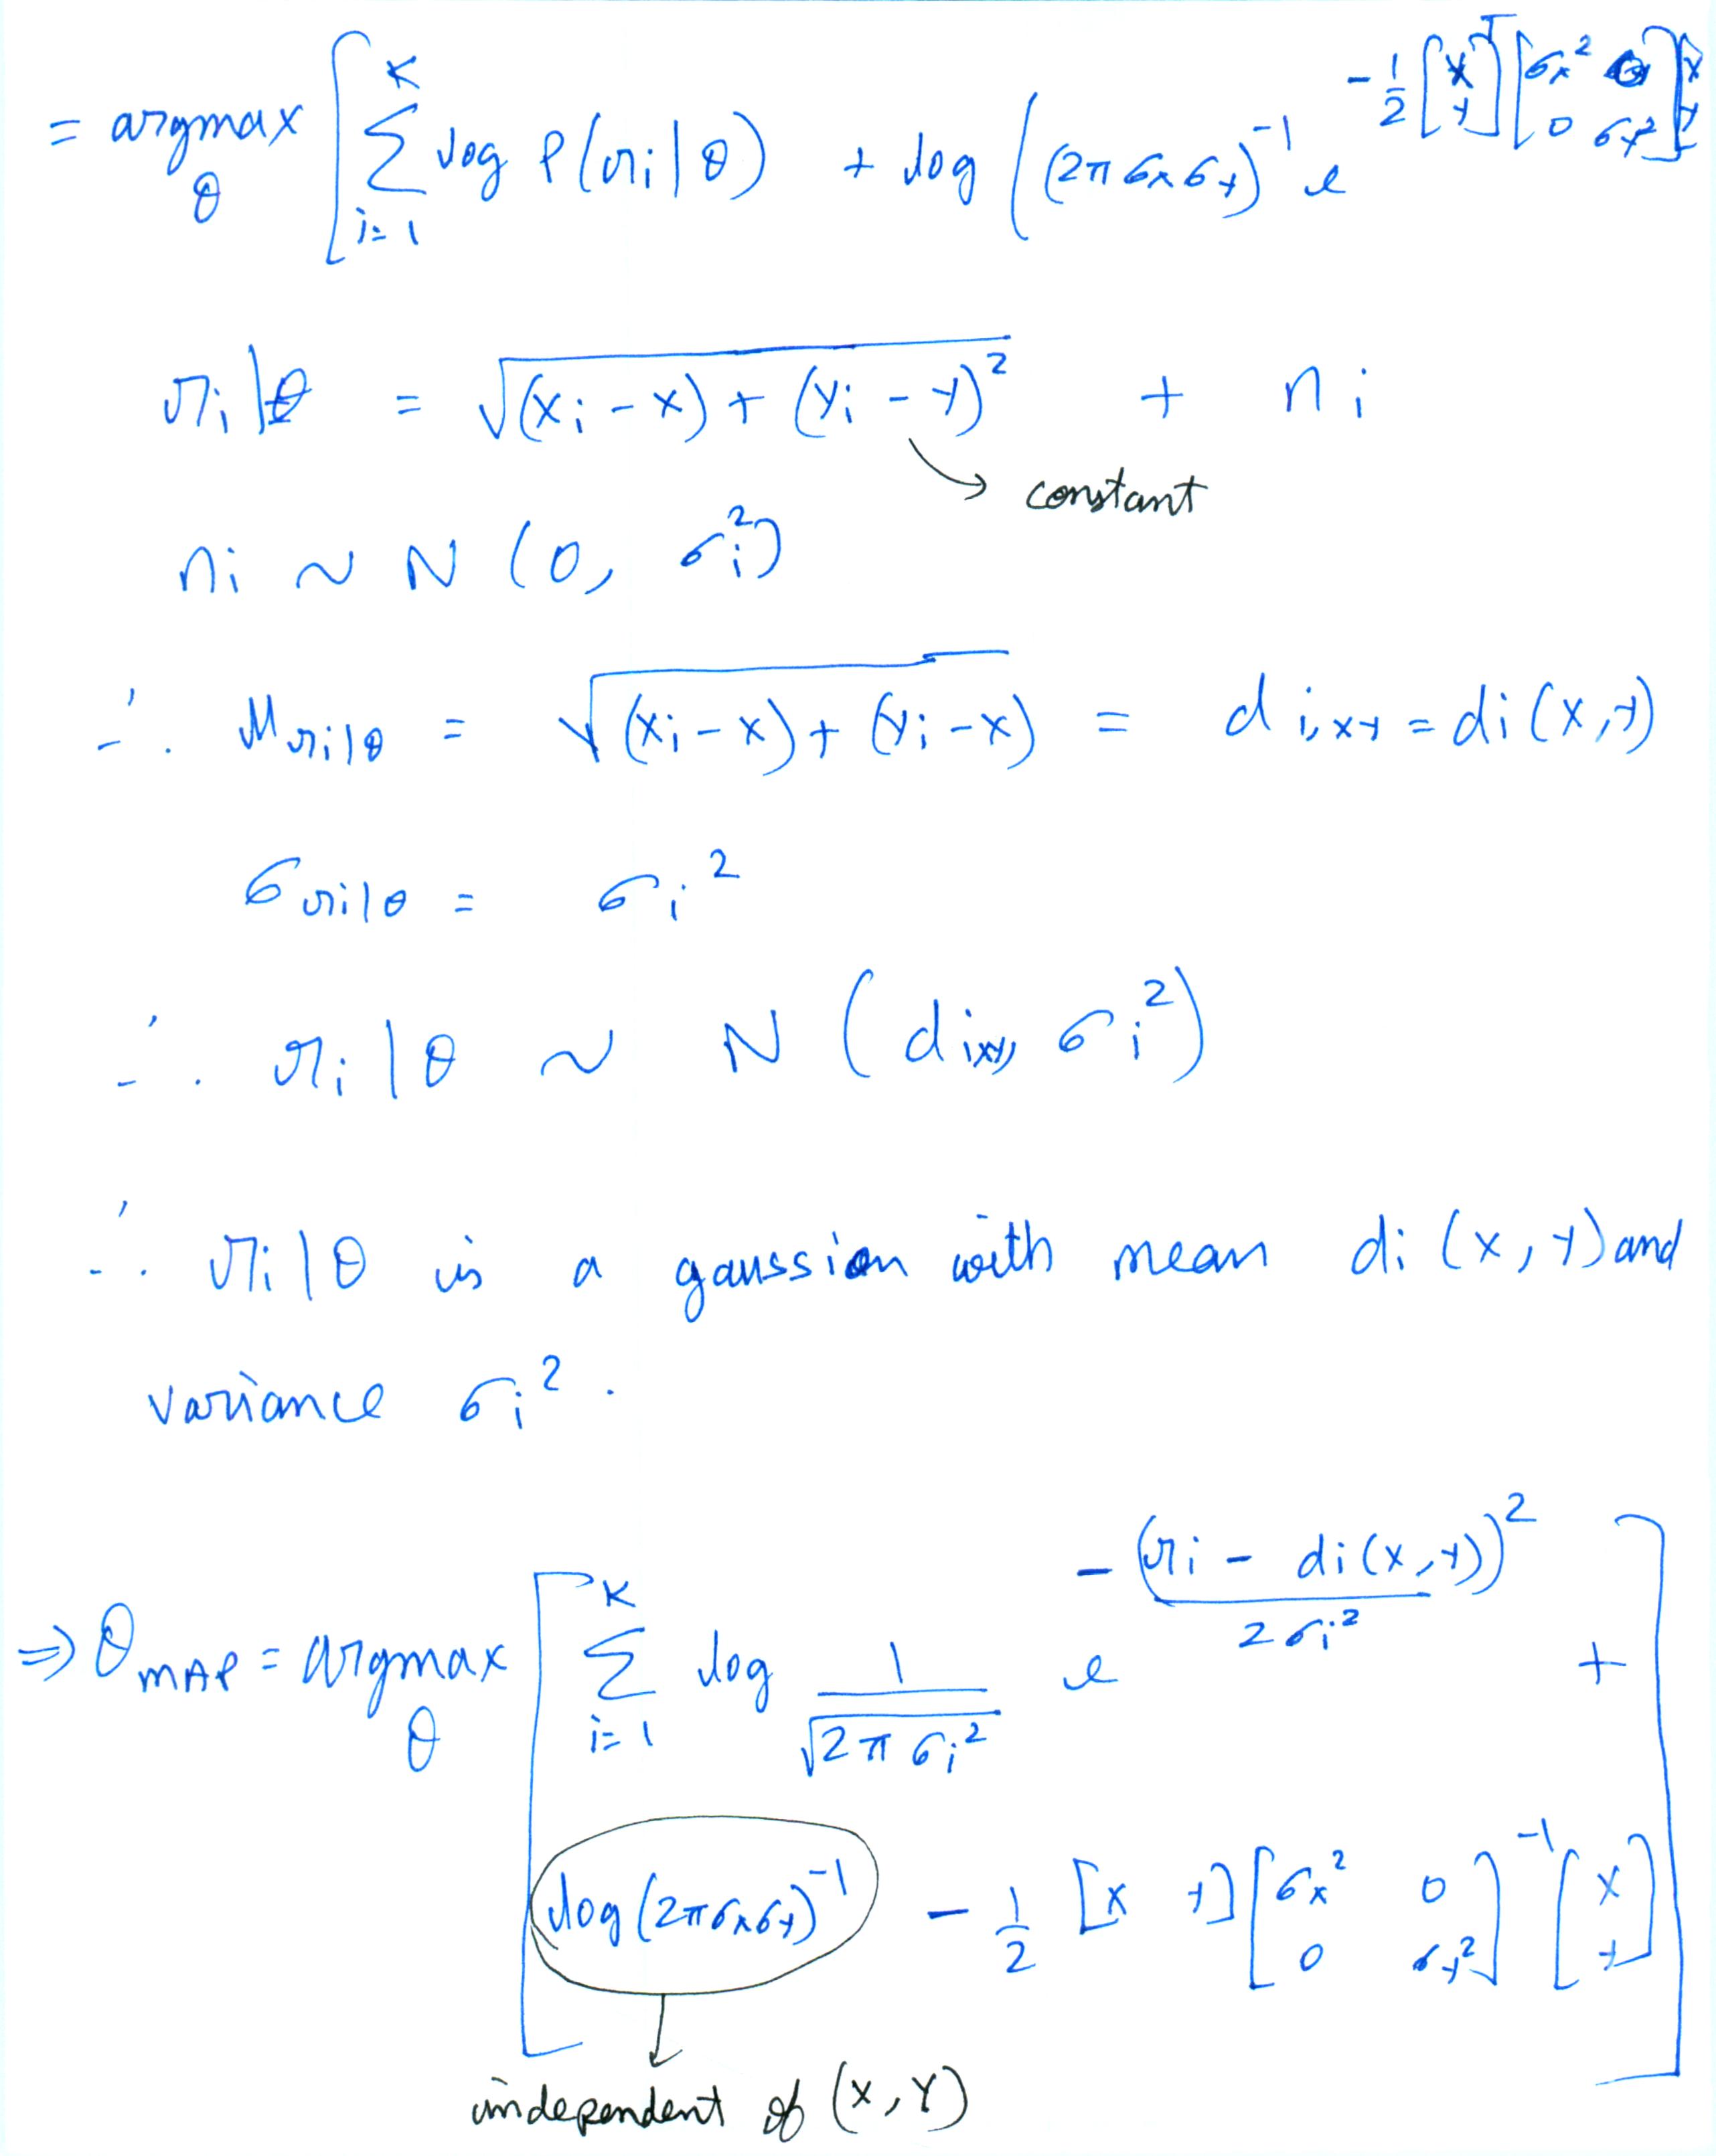 = argmax_θ [ Σ_{i=1}^{K} log P(r_i|θ) + log ( (2π σ_x σ_y)^{-1} e^{-1/2 [x y]^T [σ_x^2 0 0 σ_y^2] [x y]}
r_i|θ = √((x_i - x) + (y_i - y)^2) + n_i
constant
n_i ~ N (0, σ_i^2)
∴ μ_{r_i|θ} = √((x_i - x) + (y_i - x)) = d_{i,xy} = d_i(x,y)
σ_{r_i|θ} = σ_i^2
∴ r_i|θ ~ N ( d_{ixy}, σ_i^2 )
∴ r_i|θ is a gaussian with mean d_i (x, y) and
variance σ_i^2.
⇒ θ_MAP = argmax_θ [ Σ_{i=1}^{K} log 1/√(2πσ_i^2) e^{-(r_i - d_i(x,y))^2 / 2σ_i^2} +
log (2πσ_xσ_y)^{-1} - 1/2 [x y] [σ_x^2 0 0 σ_y^2]^{-1} [x y] ]
independent of (x, y)